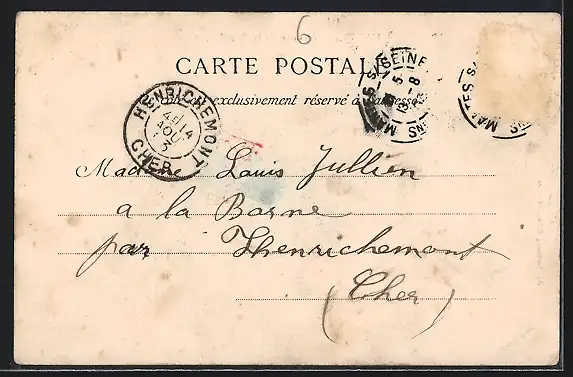 6
CARTE POSTALE
exclusivement réservé à l'adresse
HENRICHEMONT
4E 14
AOU
CHER
S/SEINE
5
8
MANTES S/
Madame Louis Jullien
a la Borne
par Henrichemont
(Cher)